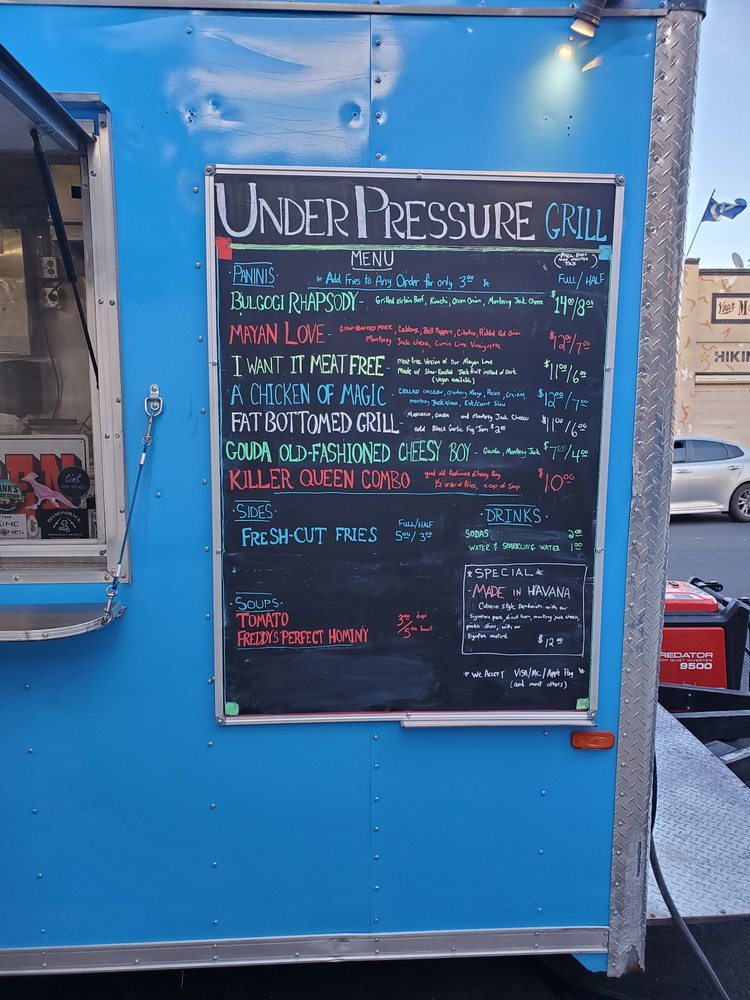 UNDER PRESSURE GRILL
MENU
PANINIS * Add fries to Any Order for only 3.00 * FULL/HALF
BULGOGI RHAPSODY - Grilled Sirloin Beef, Kimchi, Green Onion, Monterey Jack Cheese $14.00/8.00
MAYAN LOVE - Slow-Roasted Pork, Cabbage, Bell Peppers, Cilantro, Pickled Red Onion $12.00/7.00
Monterey Jack cheese, Cumin Lime Vinaigrette
I WANT IT MEAT FREE - meat free Version of Our Mayan Love $11.00/6.00
Made w/ Slow-Roasted Jackfruit instead of Pork
(vegan available)
A CHICKEN OF MAGIC - GRILLED CHICKEN, Cranberry Mayo, Pecans, Craisins, $12.00/7.00
Monterey Jack cheese, Kale/Carrot Slaw
FAT BOTTOMED GRILL - Gouda and Monterey Jack Cheeses $11.00/6.00
add Black Garlic Fig Jam $2.00
GOUDA OLD-FASHIONED CHEESY BOY - Gouda, Monterey Jack $7.00/4.00
KILLER QUEEN COMBO good old fashioned Cheesy Boy $10.00
1/2 order of fries, a cup of Soup
SIDES
FULL/HALF
FRESH-CUT FRIES 5.00/3.00
SOUPS
TOMATO 3.00 cup
FREDDY'S PERFECT HOMINY 5.00 bowl
DRINKS
SODAS 2.00
WATER & SPARKLING WATER 1.00
* SPECIAL *
- MADE IN HAVANA
Cubano style Sandwich with our
Signature pork, sliced ham, monterey jack cheese,
pickle slices, with our
Signature mustard. $12.00
* We Accept VISA/MC/Apple Pay *
(and most others)
PREDATOR
9500
HIKIN